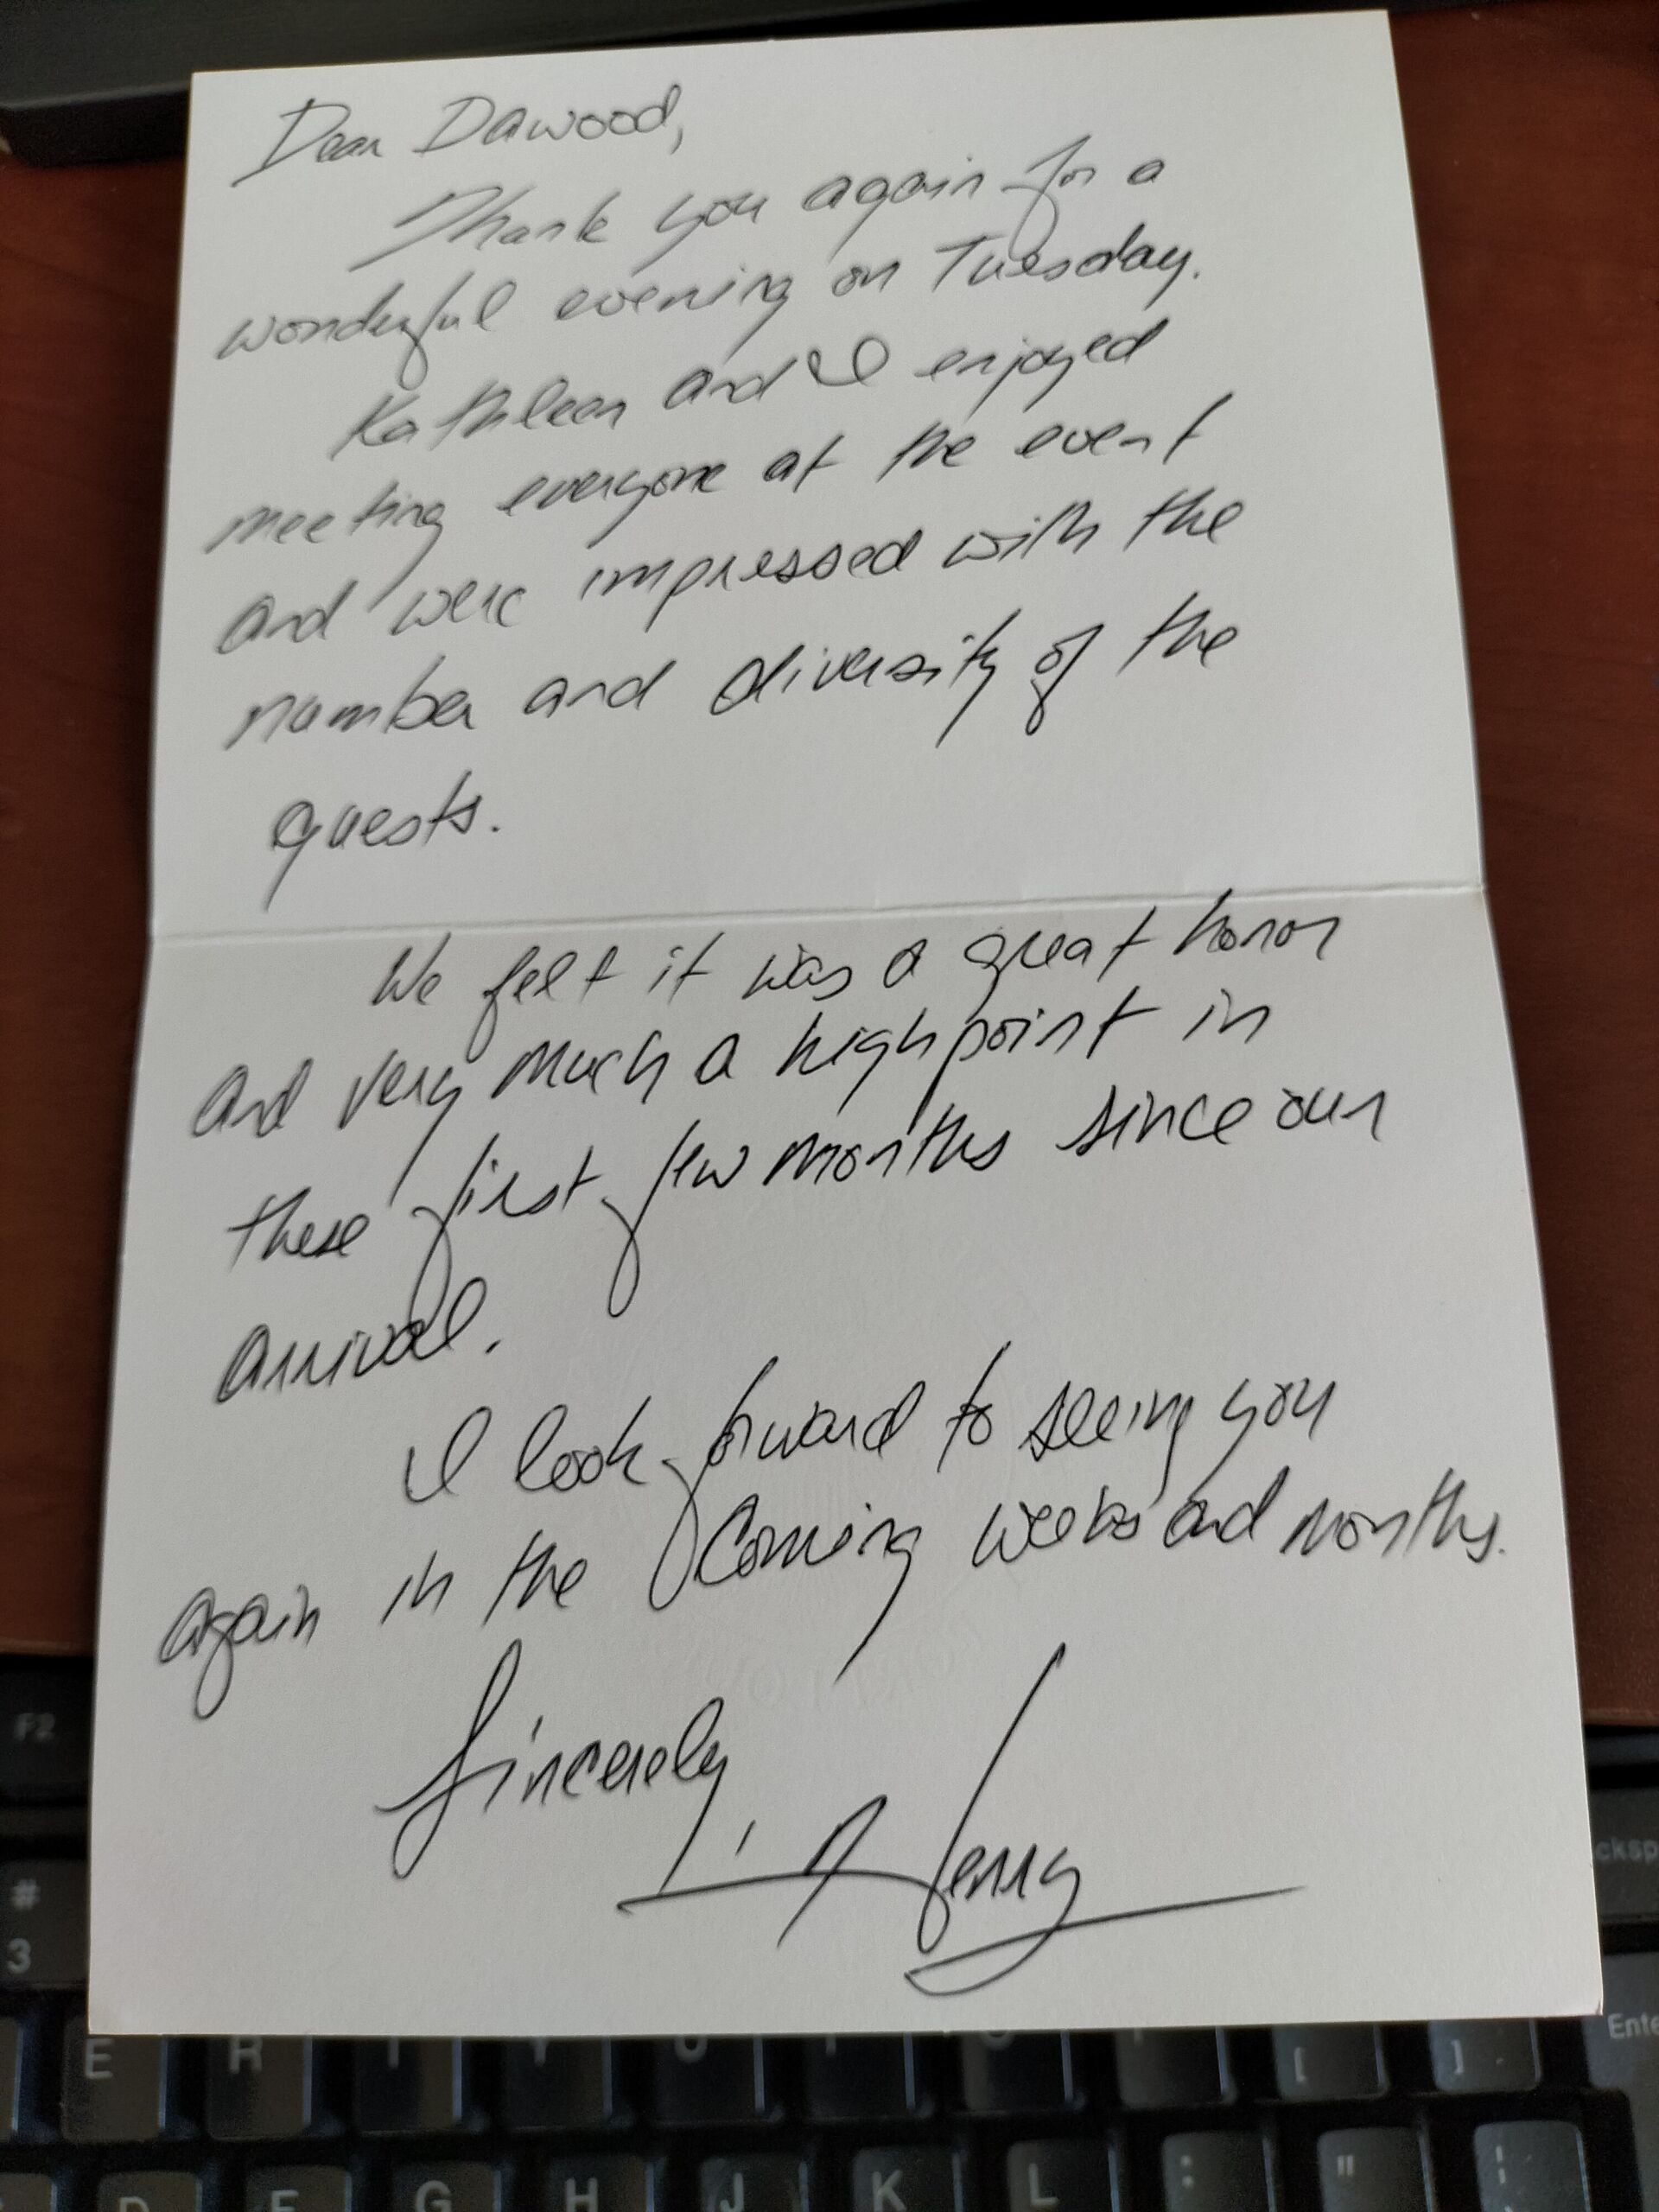 Dear Dawood,
Thank you again for a
wonderful evening on Tuesday.
Kathleen and I enjoyed
meeting everyone at the event
and were impressed with the
number and diversity of the
guests.
We felt it was a great honor
and very much a highpoint in
these first few months since our
arrival.
I look forward to seeing you
again in the coming weeks and months.
Sincerely,
F2
#
3
E R T Y U I O P [ ]
Ente
cksp
D F G H J K L : "